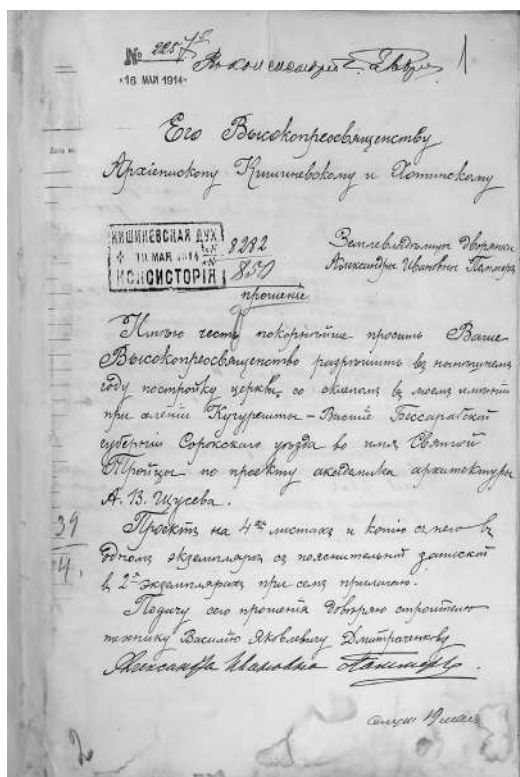 № 2257
16 МАЙ 1914
Въ консисторію
1
Его Высокопреосвященству
Архіепископу Кишиневскому и Хотинскому
КИШИНЕВСКАЯ ДУХ
МАЯ 1914
КОНСИСТОРІЯ
8282
850
Землевладѣлицы дворянки
Александры Ивановны
прошеніе.
Имѣю честь покорнѣйше просить Ваше
Высокопреосвященство разрѣшить въ нынѣшнемъ
году постройку церкви, со склепомъ въ моемъ имѣніи
при селеніи Кучурешты - Бессарабской
губерніи Сорокскаго уѣзда во имя Святой
Тройцы по проекту академика архитектуры
А. В. Щусева.
Проектъ на 4хъ листахъ и копію съ него въ
одномъ экземплярѣ съ пояснительной запиской
въ 2хъ экземплярахъ при семъ прилагаю.
Подачу сего прошенія довѣряю строителю
технику Василію Яковлевичу Дмитраченкову
Александра Ивановна
39
4.
19 мая
2